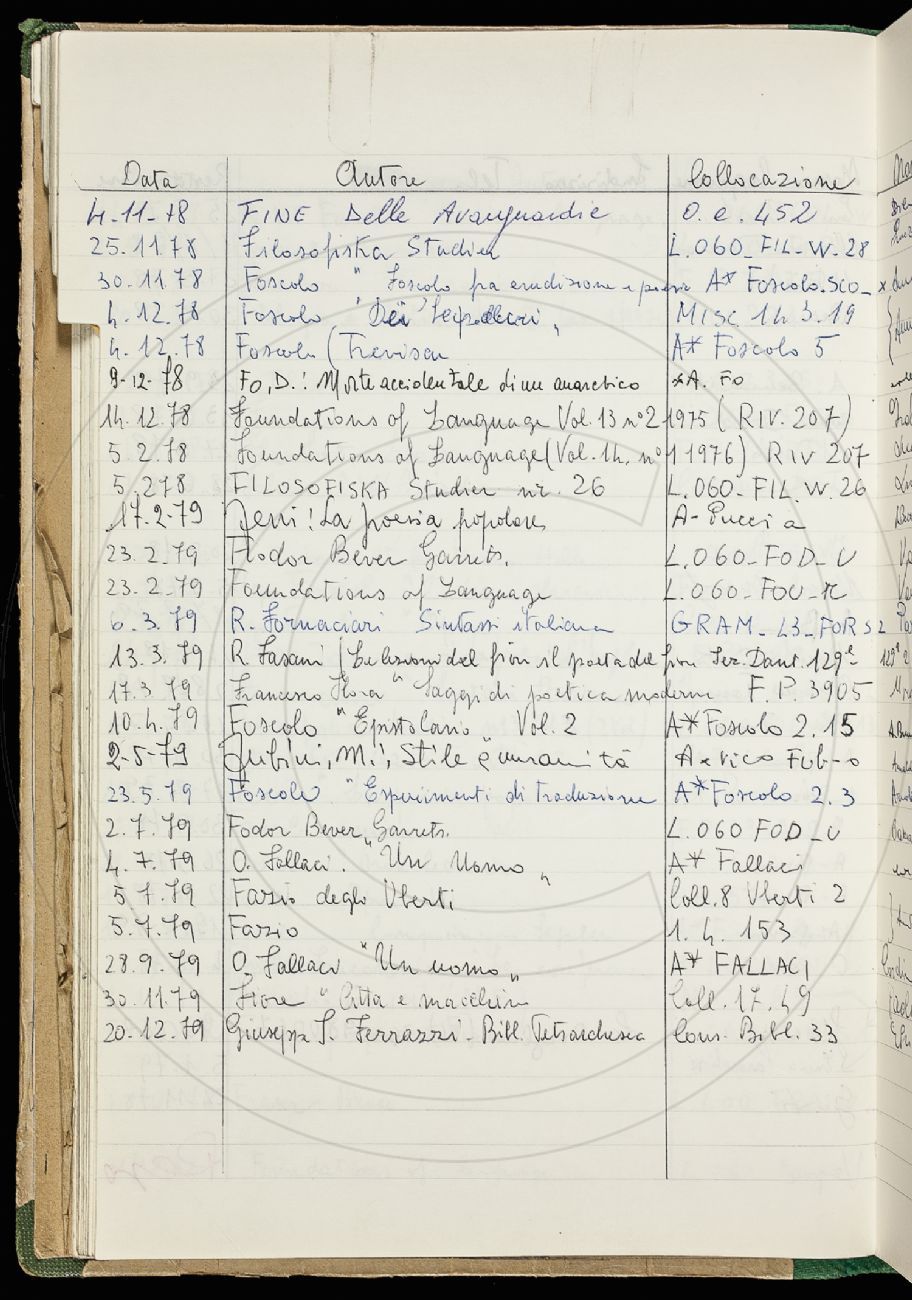 Data Autore Collocazione
4-11-78 FINE Delle Avanguardie O.e. 452
25.11.78 Filosofiska Studier L.060_FIL-W-28
30-11.78 Foscolo " Foscolo fra erudizione e poesia A* Foscolo.SCO_
4.12.78 Foscolo " Dei Sepolcri " MISC 14 3.19
4.12.78 Foscolo (Trevisan A* Foscolo 5
9-12-78 FO, D.: Morte accidentale di un anarchico *A. Fo
14.12.78 Foundations of Language Vol.13 n°2 1975 (RIV. 207)
5.2.78 Foundations of Language (Vol.14. n°1 1976) RIV 207
5.278 FILOSOFISKA Studier nr. 26 L.060-FIL.W.26
17.2-79 Jeni: La poesia popolare A-Pucci a
23.2.79 Flodor Bever Garrets. L.060-FOD-U
23.2-79 Foundations of Language L.060-FOU-K
6.3.79 R. Fornaciari Sintassi italiana GRAM_L3_FOR S2
13.3.79 R. Fasani (La lezione del fiore il poeta del fiore Sez.Dant.129
17.3.79 Francesco Flora " Saggi di poetica moderna F.P. 3905
10.4.79 Foscolo " Epistolario " Vol. 2 A* Foscolo 2.15
2-5-79 Fubini, M.: Stile e umanità A-Vico Fub-o
23.5.79 Foscolo " Esperimenti di traduzione A* Foscolo 2.3
2.7.79 Fodor Bever Garrets. L.060 FOD_U
4.7.79 O. Fallaci. " Un Uomo " A* Fallaci
5 7.79 Fazio degli Uberti Coll.8 Uberti 2
5.7.79 Fazio 1.4.153
28.9.79 O. Fallaci " Un uomo " A* FALLACI
30.11.79 Fiore " Città e macchine Coll.17.49
20.12.79 Giusepp J. Ferrazzi - Bibl. Petrarchesca Cons. Bibl. 33